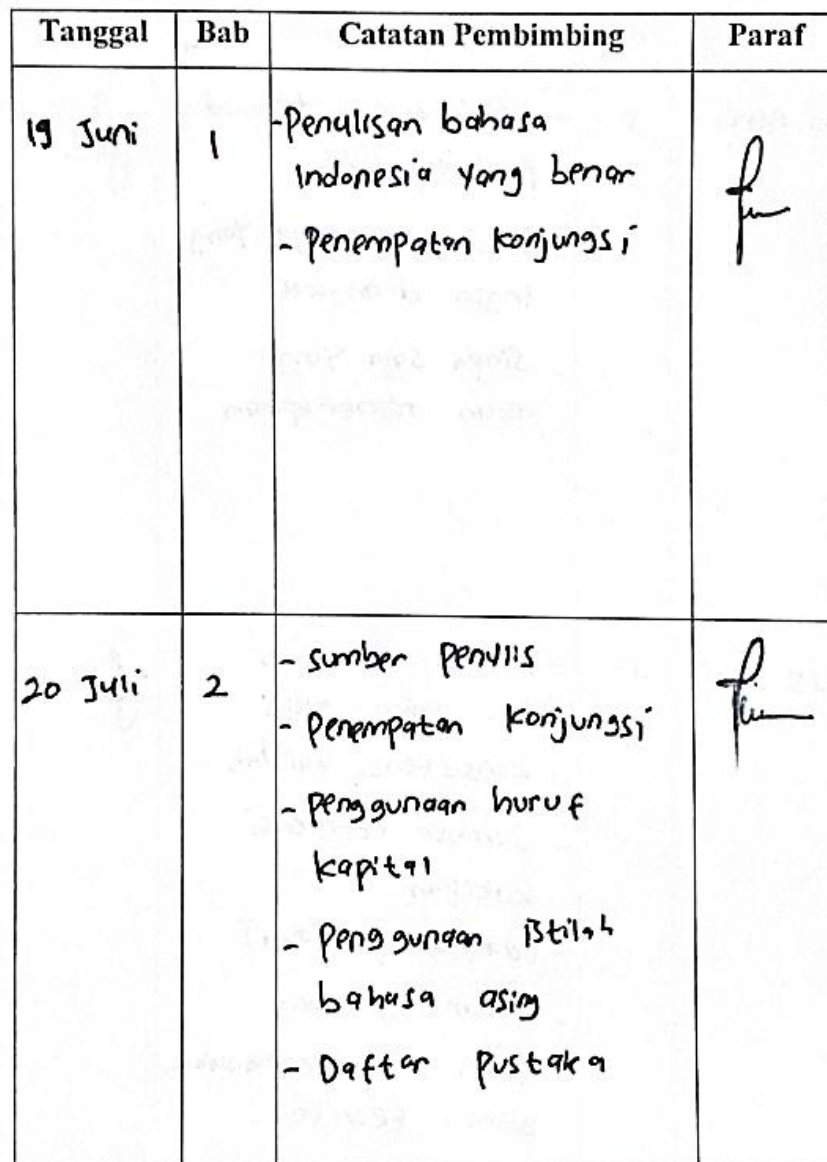 Tanggal Bab Catatan Pembimbing Paraf
19 Juni 1 -Penulisan bahasa
Indonesia yang benar
- Penempatan konjungsi
20 Juli 2 - sumber penulis
- Penempatan konjungsi
- penggunaan huruf
kapital
- penggunaan istilah
bahasa asing
- Daftar pustaka